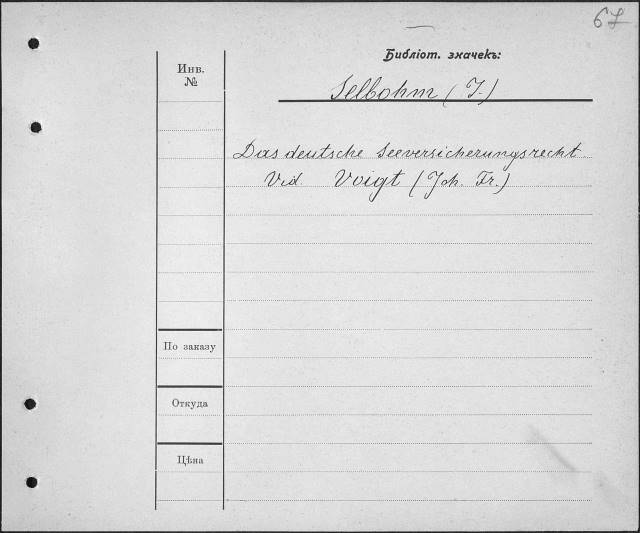 67
Библіот. значекъ:
Инв.
№
Selbohm (J.)
Das deutsche Seeversicherungsrecht
Vid. Voigt (Joh. Fr.)
По заказу
Откуда
Цѣна